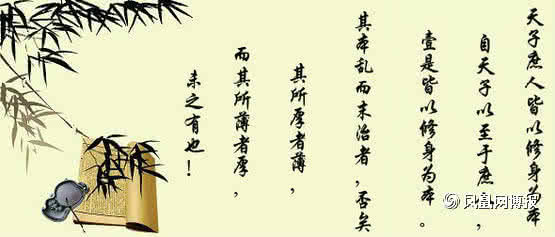 天子庶人皆以修身为本
自天子以至于庶,
壹是皆以修身为本。
其本乱而末治者,否矣
其所厚者薄,
而其所薄者厚,
未之有也!
凤凰网博报